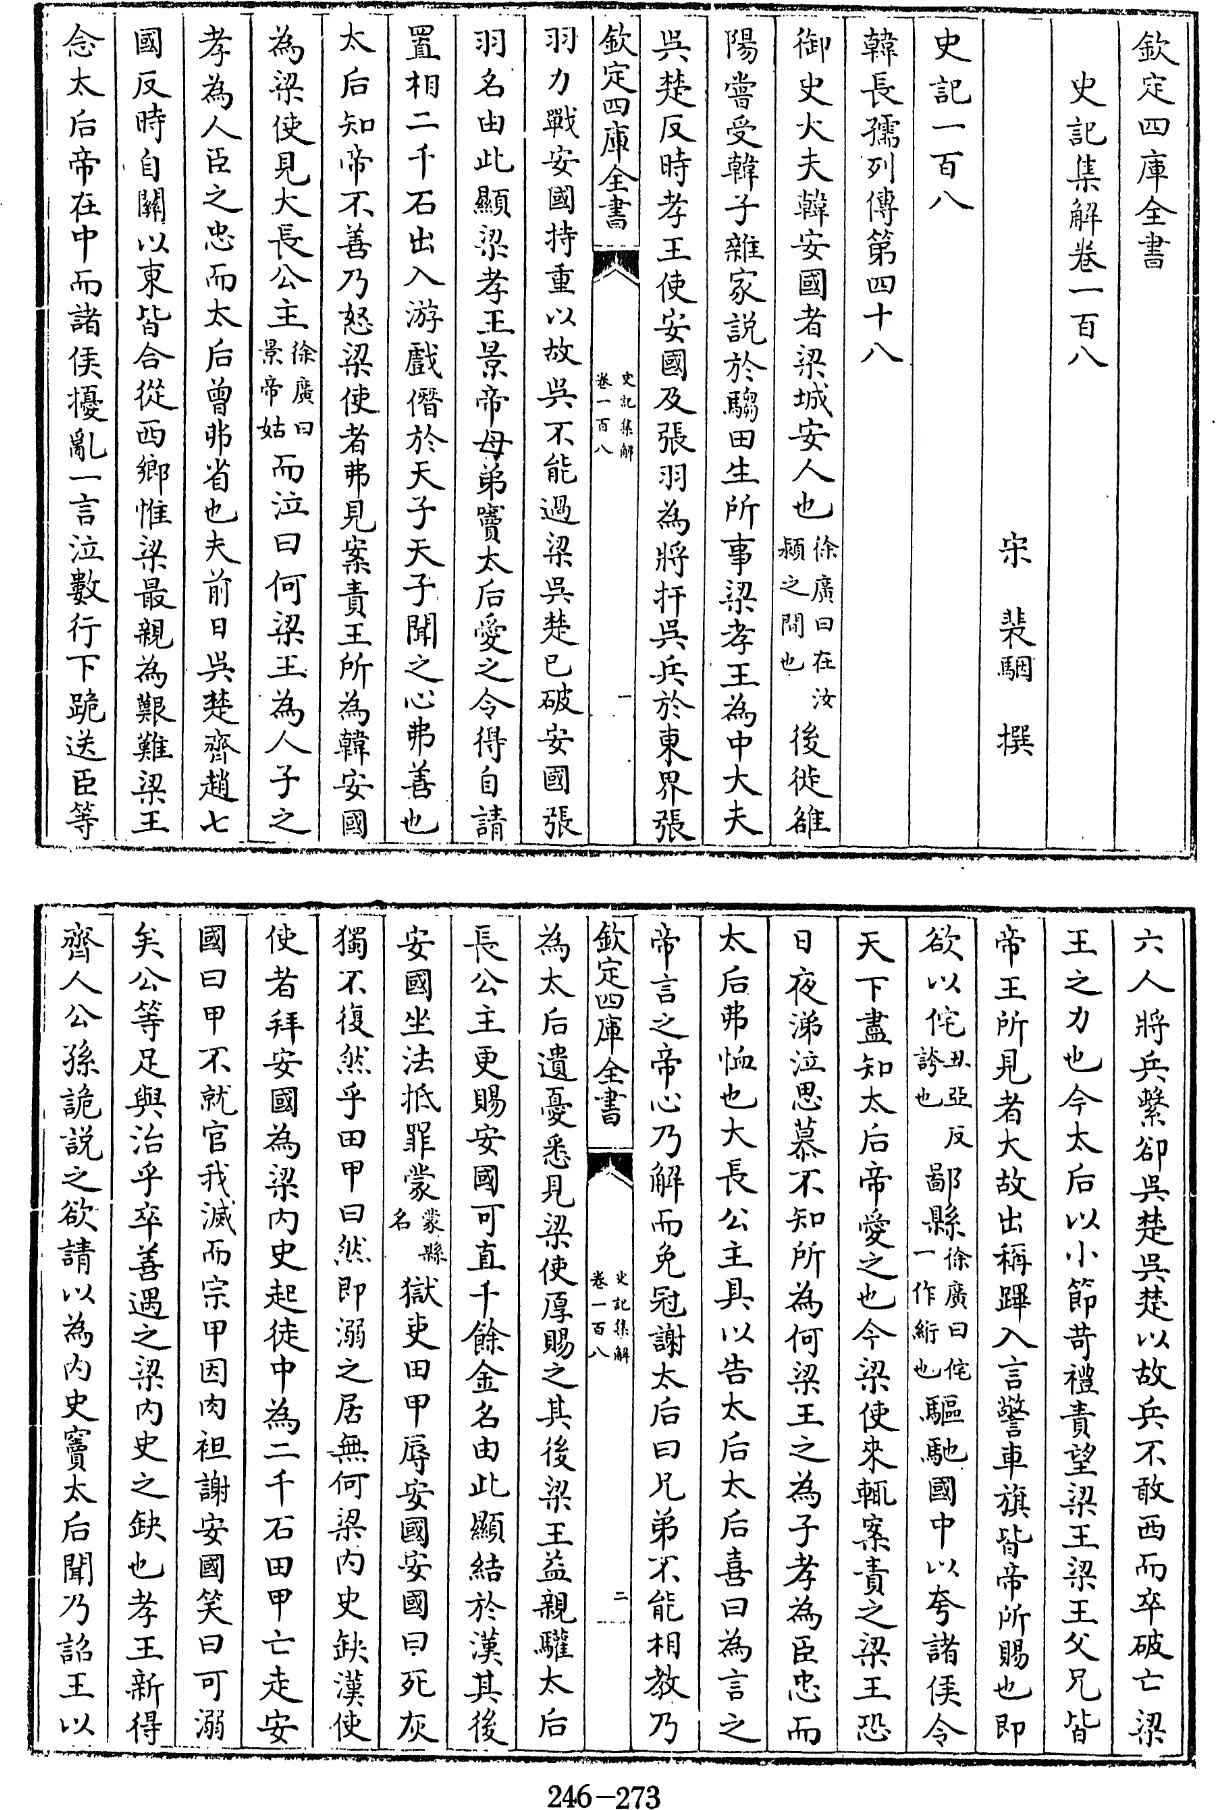 欽定四庫全書
史記集解卷一百八
宋 裴駰 撰
史記一百八
韓長孺列傳第四十八
御史大夫韓安國者梁城安人也徐廣曰在汝潁之間也後徙雒
陽嘗受韓子雜家說於騶田生所事梁孝王為中大夫
吳楚反時孝王使安國及張羽為將扞吳兵於東界張
欽定四庫全書 史記集解 卷一百八 一
羽力戰安國持重以故吳不能過梁吳楚已破安國張
羽名由此顯梁孝王景帝母弟竇太后愛之令得自請
置相二千石出入游戲僭於天子天子聞之心弗善也
太后知帝不善乃怒梁使者弗見案責王所為韓安國
為梁使見大長公主徐廣曰景帝姑而泣曰何梁王為人子之
孝為人臣之忠而太后曾弗省也夫前日吳楚齊趙七
國反時自關以東皆合從西鄉惟梁最親為艱難梁王
念太后帝在中而諸侯擾亂一言泣數行下跪送臣等
六人將兵繫卻吳楚吳楚以故兵不敢西而卒破亡梁
王之力也今太后以小節苛禮責望梁王梁王父兄皆
帝王所見者大故出稱蹕入言警車旗皆帝所賜也即
欲以侘丑亞反誇也鄙縣徐廣曰侘一作絎也驅馳國中以夸諸侯令
天下盡知太后帝愛之也今梁使來輒案責之梁王恐
日夜涕泣思慕不知所為何梁王之為子孝為臣忠而
太后弗恤也大長公主具以告太后太后喜曰為言之
帝言之帝心乃解而免冠謝太后曰兄弟不能相教乃
欽定四庫全書 史記集解 卷一百八 二
為太后遺憂悉見梁使厚賜之其後梁王益親驩太后
長公主更賜安國可直千餘金名由此顯結於漢其後
安國坐法抵罪蒙蒙縣名獄吏田甲辱安國安國曰死灰
獨不復然乎田甲曰然即溺之居無何梁內史缺漢使
使者拜安國為梁內史起徒中為二千石田甲亡走安
國曰甲不就官我滅而宗甲因肉袒謝安國笑曰可溺
矣公等足與治乎卒善遇之梁內史之缺也孝王新得
齊人公孫詭說之欲請以為內史竇太后聞乃詔王以
246-273